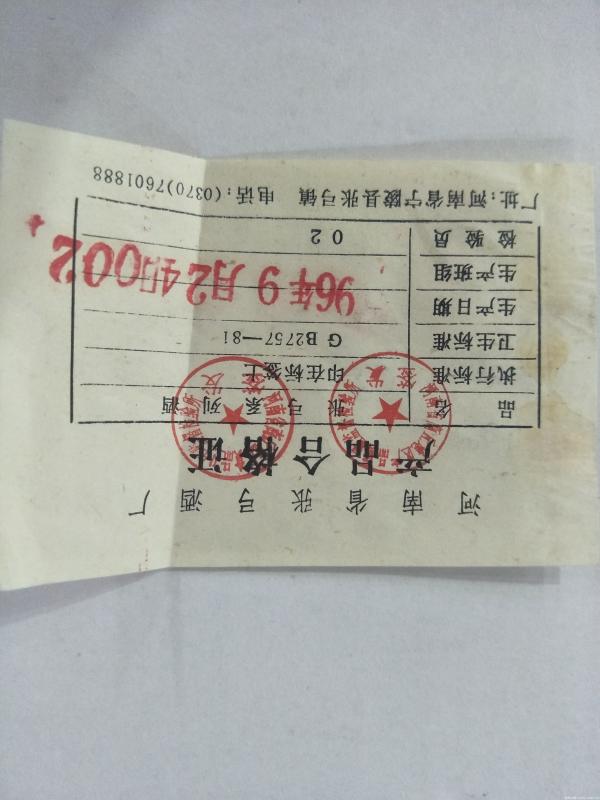 河南省张弓酒厂
产品合格证
品名 张弓系列酒
执行标准 印在标签上
卫生标准 GB2757—81
生产日期
96年9月24日002
生产班组
检验员 02
厂址：河南省宁陵县张弓镇 电话：(0370)7601888
签发
签发